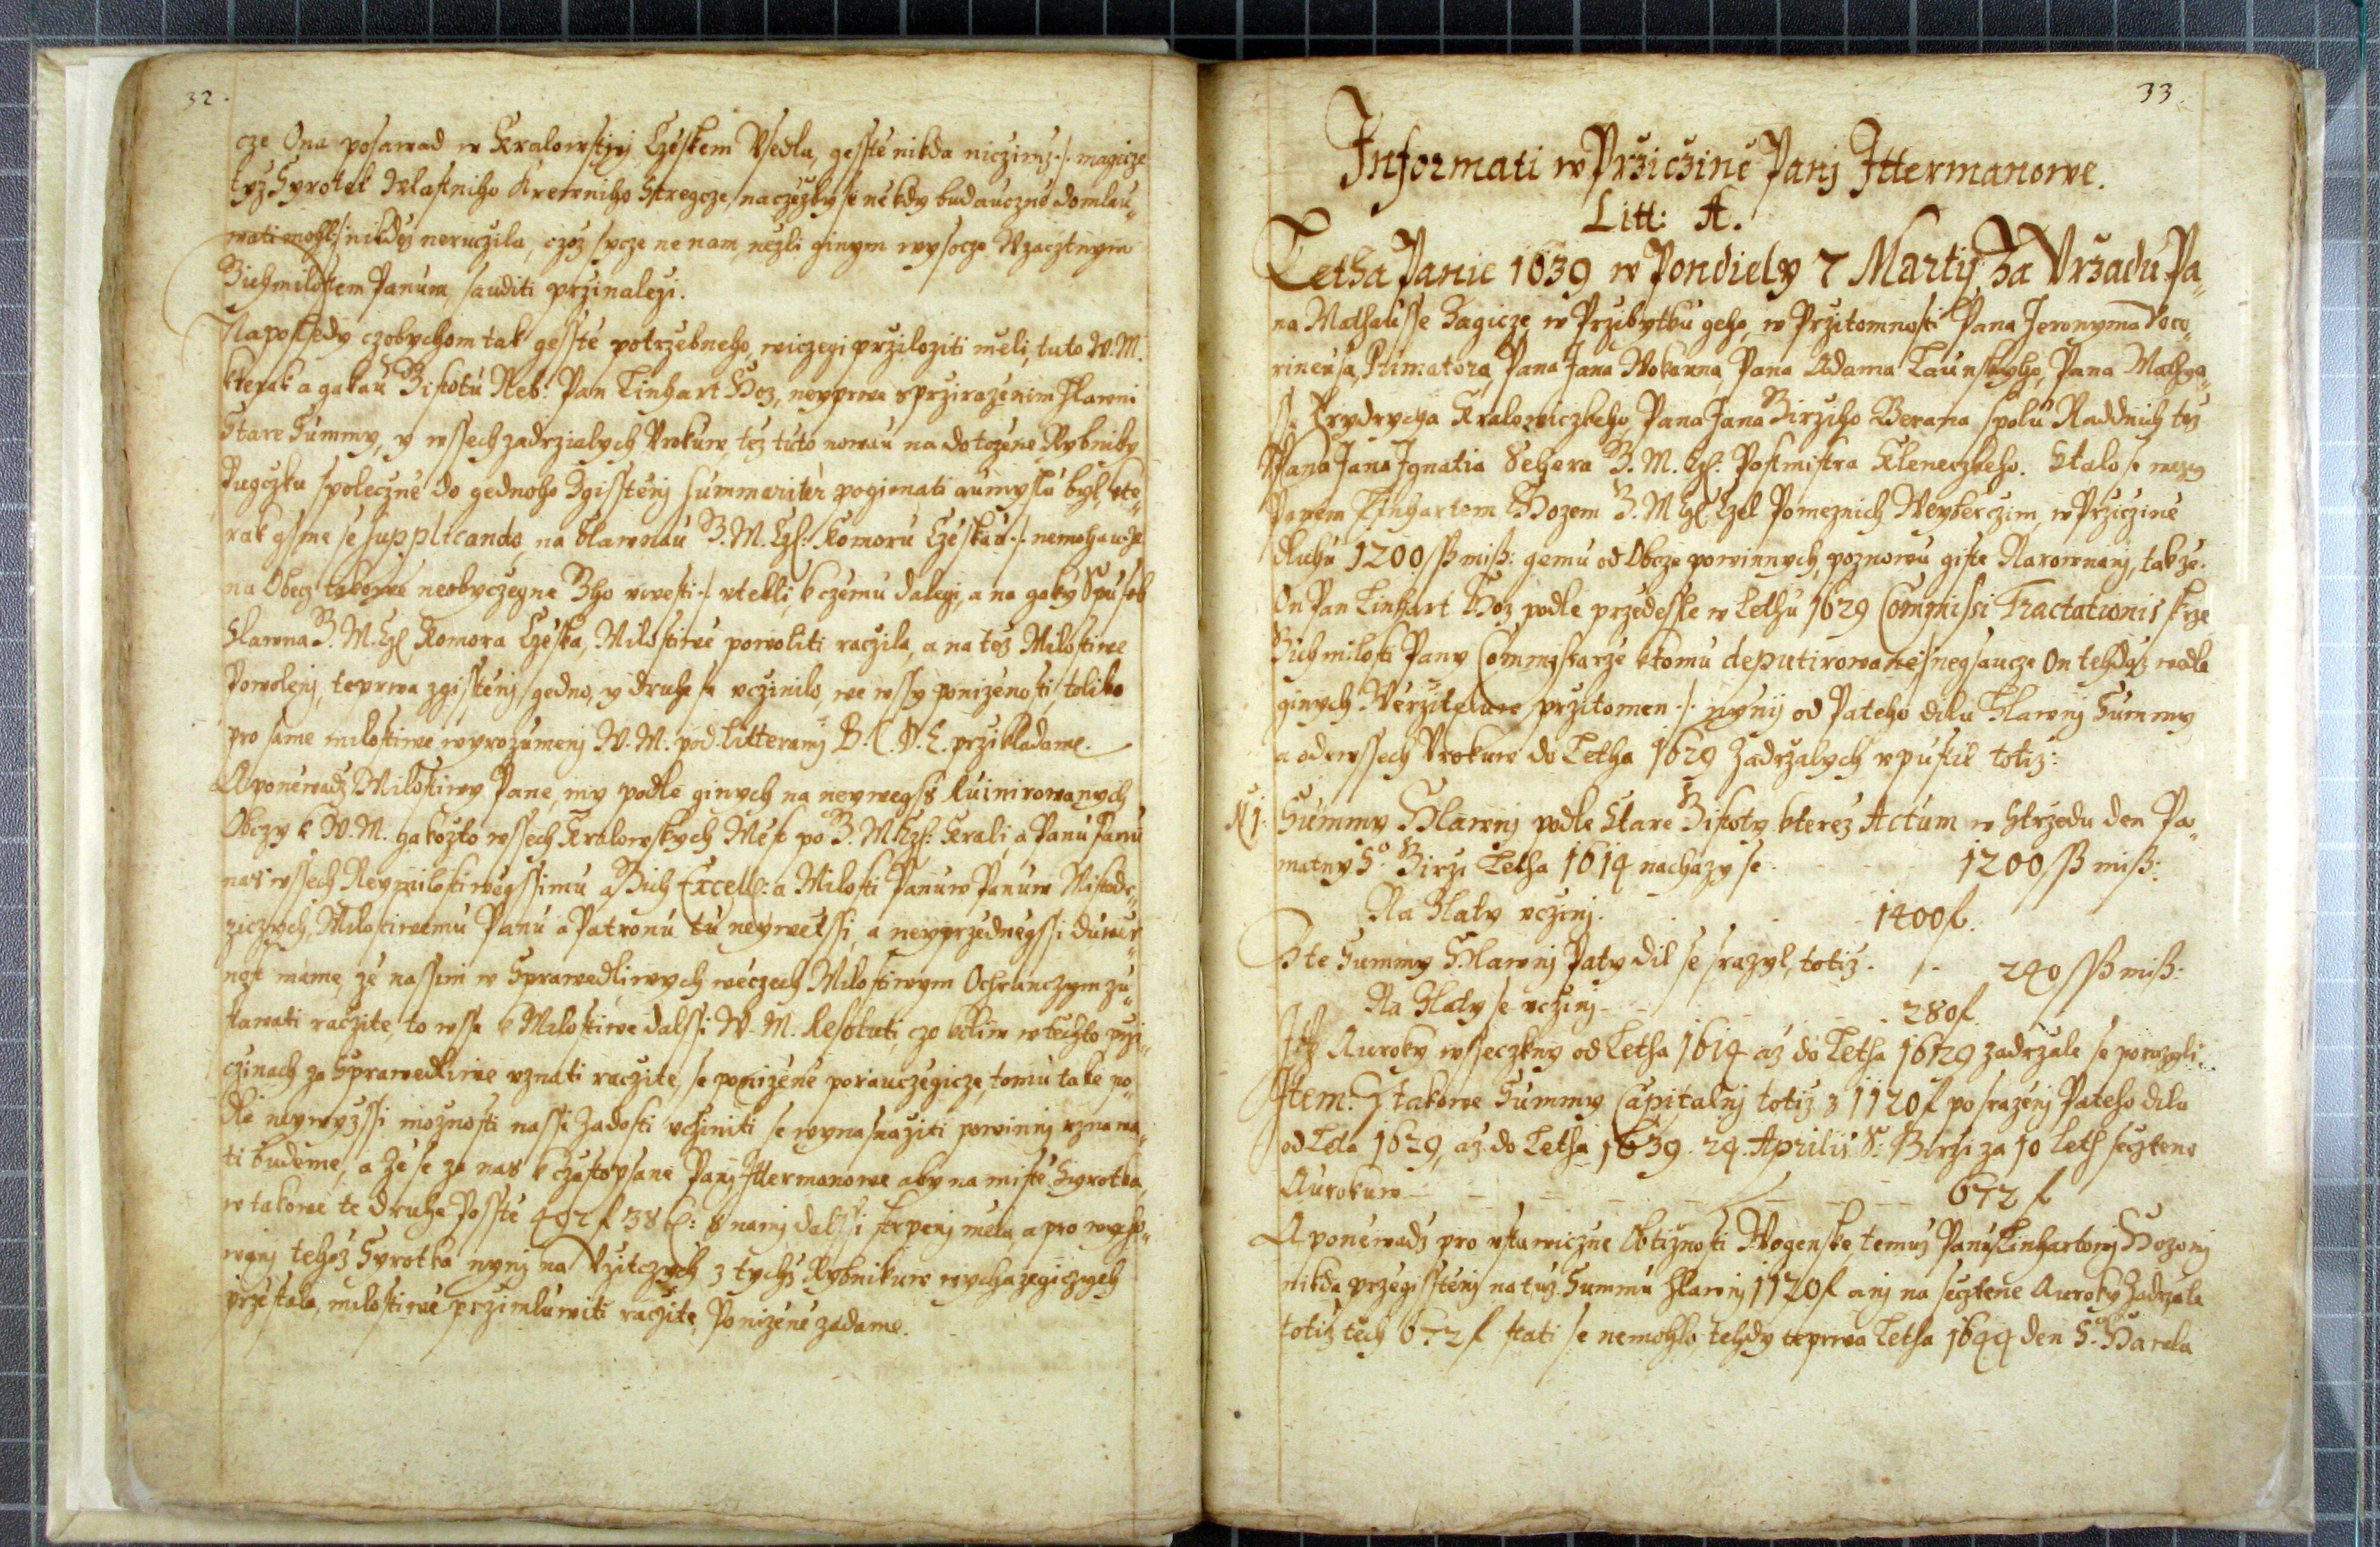 32.
cze Ona posawad w Kralowstwj Czeskem Vsedla, gesste nikda niczimz ·/· magicze
tyz Syrotek Wlastniho Krewniho Stregcze, naczezby se nekdy budauczne domlau„
wati mohl nikdez neruczila, czoz sycze ne nam, nezli ginym wysocze Wzacztnym
Bichmilostem Panum sauditi przinalezi.
Naposledy czobychom tak gesste potrzebneho, wiczegi przilożiti meli, tuto W. M.
kterak a gakau Bistotu Neb: Pan Linhart Hoz, neyprwe sprzirazenim Hlawni
Stare Summy, y wssech zadrzialych Vrokuw, tez tuto nowau na dotczene Rybniky
Pugczku spolecznie do gednoho Zgisstenj summariter pogimati aumyslu byl, kte„
rak gsme se supplicando, na Slawnau G. M. Czs: Komoru Czeskau ·/· nemohauze
na Obecz takowe neobyczegne Bho uwesti ·/· vtekli, k czemu dalegi, a na gaky Spusob
Slawna G. M. Czs Komora Czeska, Milostiwe powoliti raczila, a na tez Milostiwe
Powolenj, teprwa zgistenj, gedno, y druhe se vczinilo, we wssy ponizenosti, toliko
pro same milostiwe wyrozumenj W. M. pod litteramj B. C. D. E. przikladame.
A ponewadz Milostiwy Pane, my podle ginych na neywegss Ruinirowanych
Obczy k W. M. gakozto wssech Kralowskych Mest po G. M. Czs: Krali, a Panu Panu
nas wssech Neymilostiwegssimu a Gich Excell: a Milosti Panuw Panuw Mistodr„
ziczych, Milostiwemu Panu a Patronu tu neywetssi, a neyprzednegssi duwer„
nost mame, ze nassim w Sprawedliwych weczech Milostiwym Ochranczym zu„
stawati raczite, to wsse k Milostiwe dalssi W. M. Resoluti, czo koliw w techto przi„
czinach za Sprawedliwe vznati raczite, se ponizene porauczegicze, tomu take po„
dle neywyzssi moznosti nassi Zadosti vcziniti se wynasnaziti powinnj vznawa„
ti budeme, a Ze se za nas k czastopsane Panj Ittermanowe aby na miste Syrotka,
w takowe te druhe Posste 492 f 38 C: s namj dalssi strpenj mela, a pro wycho„
wanj tehoz Syrotka nynj na Vzitczych z tychz Rybnikuw wychazegiczych
przestala, milostiwe przimluwiti raczite, Ponizene zadame.
33.
Informati w Prziczine Panj Ittermanowe.
Litt: A.
Letha Panie 1639 w Pondiely 7 Martij, Za Vrzadu Pa„
na Mathausse Zagicze, w Przibytku geho, w Przitomnosti Pana Jeronyma Voco„
rineusa, Primatora, Pana Jana Wokauna, Pana Adama Launskyho, Pana Mathya„
sse Frydrycha Kralowiczkeho, Pana Jana Girziho Berana, spolu Raddnich tez
Pana Jana Ignatia Seyera G. M. Czs: Postmistra Kleneczkeho. Stalo se mezy
Panem Linhartem Hozem G. M Czs Czel Pomeznich Weyberczim, w Prziczine
dluhu 1200 sß miß: gemu od Obcze powinnych, poznowu giste Narownanj, tak ze
On Pan Linhart Hoz podle przedessle w Lethu 1629 Commissi Tractationis skrze
Gich milosti Pany Commissarze ktomu deputirowane / negsaucze On tehdyz wedle
ginych Werziteluw przitomen ·/· nynij od Pateho dilu Hlawnj Summy
a od wssech Vrokuw do Letha 1629 Zadrzalych vpustil totiz:
N 1. Summy Hlawnj podle Stare Gistoty kterez Actum w Strzedu den Pa„
matny S: Girzi Letha 1614 nachazy se - - 1200 sß miß:
Na Zlaty vczinj. - - 1400 f.
Z te Summy Hlawnj Paty dil se srazyl, totiz. - - 240 sß miß:
Na Zlaty se vczinj - - 280 f.
Itz Auroky wsseczkny od Letha 1614 az do Letha 1629 zadrzale se powzgli.
Item. Z takowe Summy Capitalnj totiz z 1120 f po srazenj Pateho dilu
od Leta 1629, az do Letha 1639. 24. Aprilis S: Girzi za 10 Leth secztene
Aurokuw - - - - - - 672 f
A ponewadz pro vstawiczne Obtiznosti Wogenske, temuz Panu Linhartowj Hozowj
nikda przegisstenj na tuz Summu Hlawnj 1120 f anj na secztene Auroky Zadrzale
totiz tech 672 f stati se nemohlo, tehdy teprwa Letha 1644 den S. Hawla